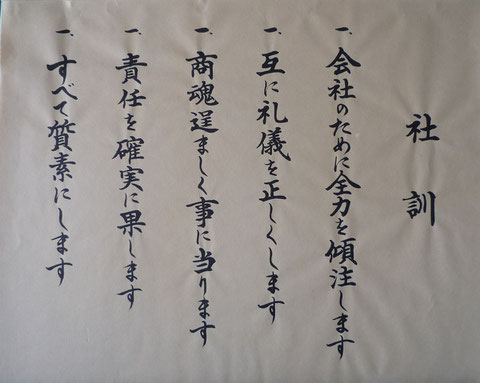 社訓
一、会社のために全力を傾注します
一、互に礼儀を正しくします
一、商魂逞ましく事に当ります
一、責任を確実に果します
一、すべて質素にします